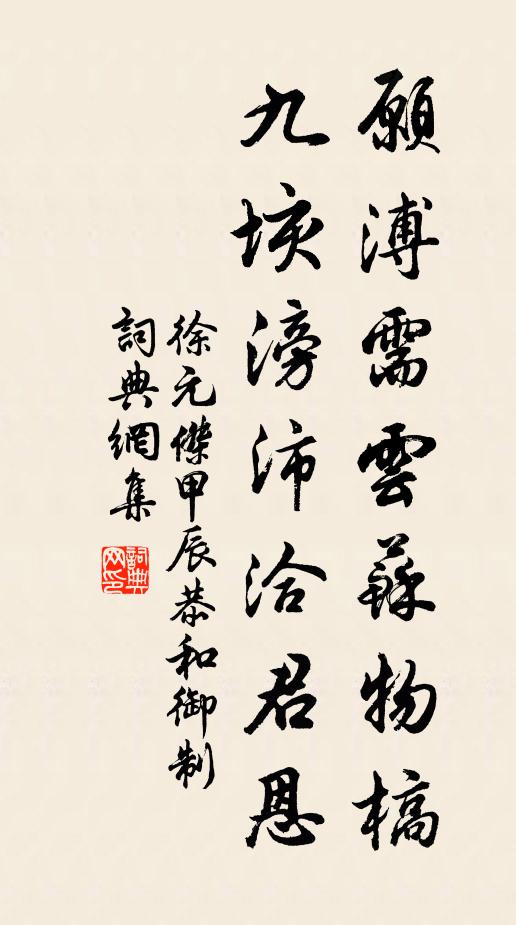 願溥需雲蘇物槁
九垓滂沛洽君恩
徐元傑甲辰恭和御制
詞典網集
詞典
网印